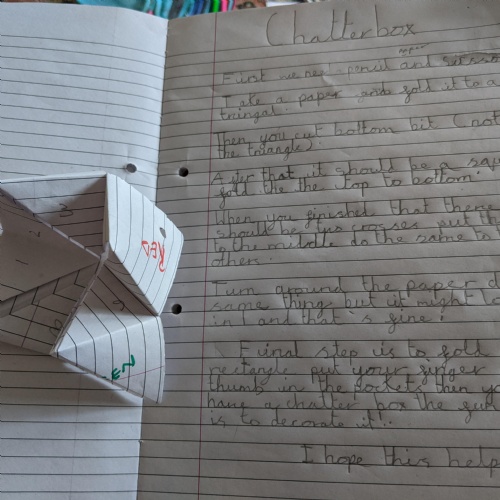 Chatterbox
First we need pencil and scisso
Tate a paper and fold it to a
tringal.
Then you cut bottom bit (not
the triangle).
After that it should be a squ
fold the the top to bottom.
When you finished that there
should be two crosses put the
to the middle do the same to th
others.
Turn around the paper d
same thing but it might b
in 1 and that's fine!
Final step is to fold
rectangle put your finger
thumb in the pockets then yo
have a chatter box the fun
is to decorate it..
I hope this help
RED
EEN
3
2
1